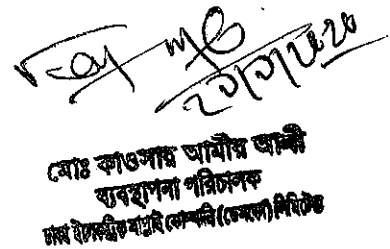 মোঃ কাওসার আমীর আলী
ব্যবস্থাপনা পরিচালক
ঢাকা ইলেকট্রিক সাপ্লাই কোম্পানি (ডেসকো) লিমিটেড